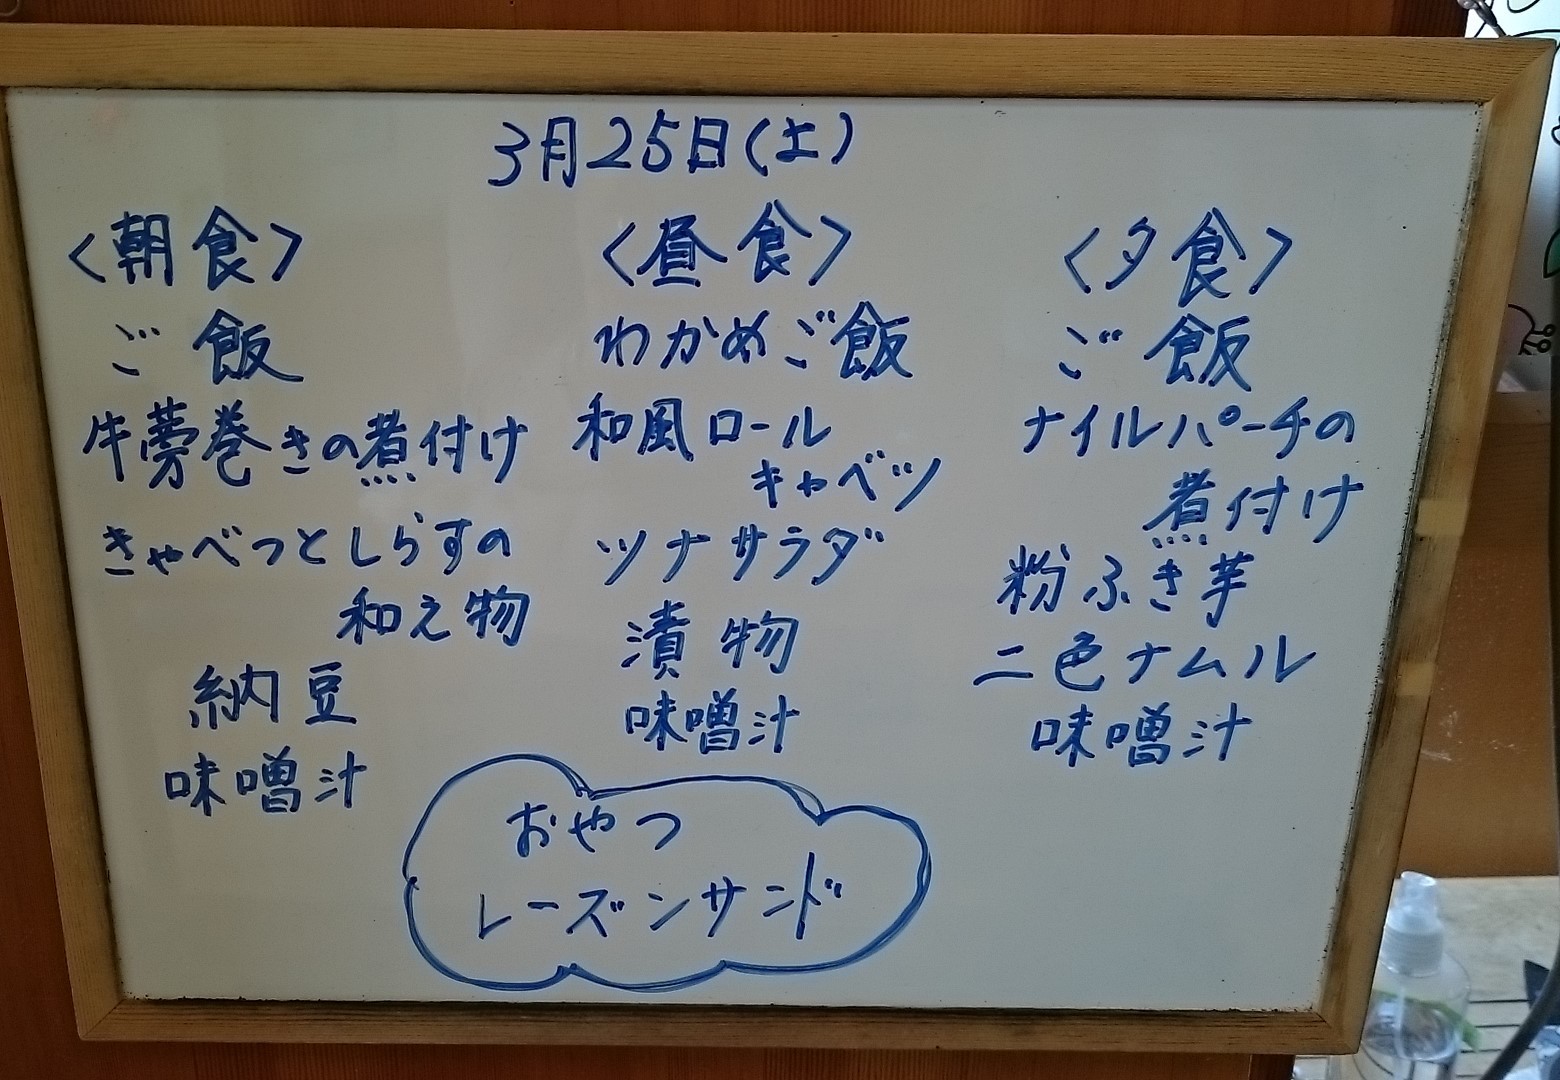 3月25日(土)
<朝食>
ご飯
牛蒡巻きの煮付け
きゃべつとしらすの
和え物
納豆
味噌汁
<昼食>
わかめご飯
和風ロール
キャベツ
ツナサラダ
漬物
味噌汁
<夕食>
ご飯
ナイルパーチの
煮付け
粉ふき芋
二色ナムル
味噌汁
おやつ
レーズンサンド